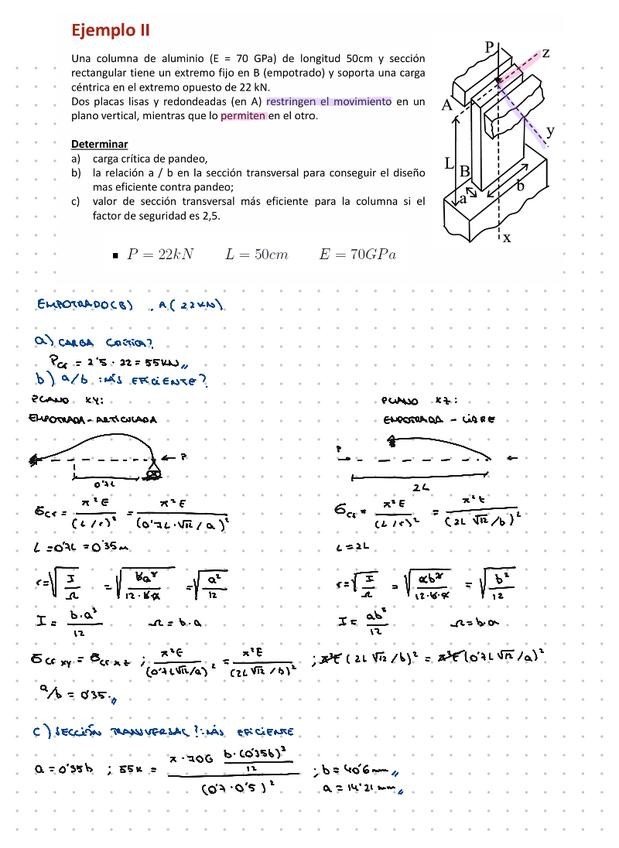 Ejemplo II
Una columna de aluminio (E = 70 GPa) de longitud 50cm y sección
rectangular tiene un extremo fijo en B (empotrado) y soporta una carga
céntrica en el extremo opuesto de 22 kN.
Dos placas lisas y redondeadas (en A) restringen el movimiento en un
plano vertical, mientras que lo permiten en el otro.
Determinar
a) carga crítica de pandeo,
b) la relación a / b en la sección transversal para conseguir el diseño
mas eficiente contra pandeo;
c) valor de sección transversal más eficiente para la columna si el
factor de seguridad es 2,5.
P
z
A
y
L
B
a
b
x
▪ P = 22kN L = 50cm E = 70GPa
EMPOTRADO(B) . A(22KN)
a) CARGA CRÍTICA?
Pcr = 2'5 · 22 = 55KN,,
b) a/b : MÁS EFICIENTE?
PLANO XY:
EMPOTRADA-ARTICULADA
P
0'7L
σcr = π²E/(L/r)² = π²E/(0'7L·√12/a)²
L = 0'7L = 0'35m
r = √(I/Ω) = √(ba³/12·b·a) = √(a²/12)
I = b·a³/12 Ω = b·a
PLANO XZ:
EMPOTRADA - LIBRE
P
2L
σcr = π²E/(L/r)² = π²E/(2L √12/b)²
L = 2L
r = √(I/Ω) = √(ab³/12·b·a) = √(b²/12)
I = ab³/12 Ω = b·a
σcr xy = σcr xz ; π²E/(0'7L√12/a)² = π²E/(2L√12/b)² ; π²E (2L √12/b)² = π²E (0'7L √12/a)²
a/b = 0'35,,
c) SECCIÓN TRANSVERSAL?: MÁS EFICIENTE
a = 0'35b ; 55K = π·70G b·(0'35b)³/12 / (0'7·0'5)² ; b = 40'6mm,,
a = 14'21mm,,